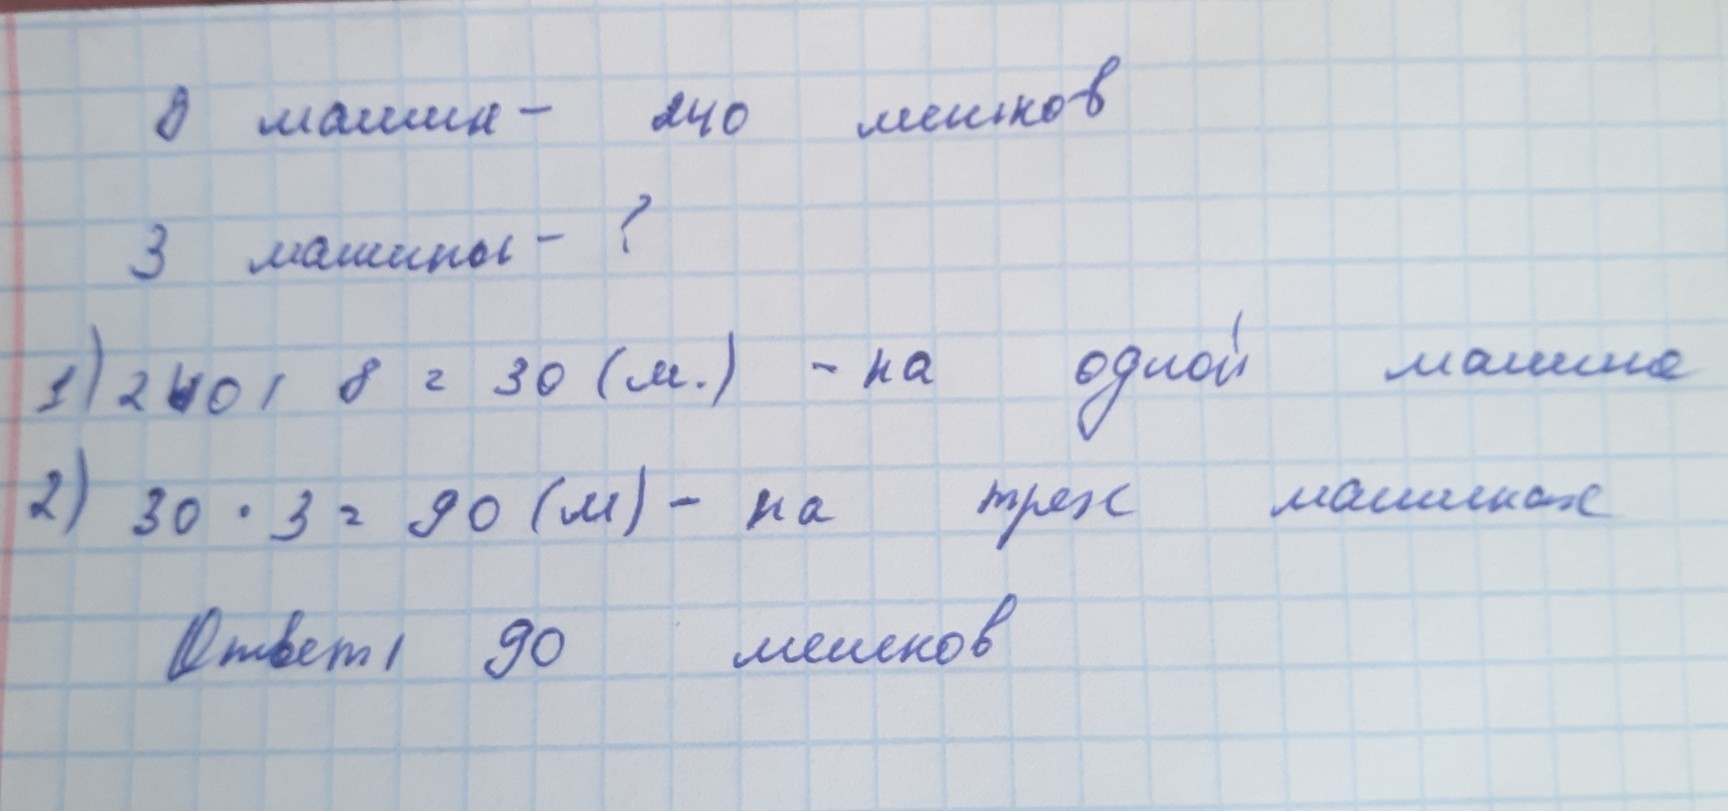 8 машин - 240 мешков
3 машины - ?
1) 240 : 8 = 30 (м.) - на одной машине
2) 30 · 3 = 90 (м) - на трех машинах
Ответ: 90 мешков